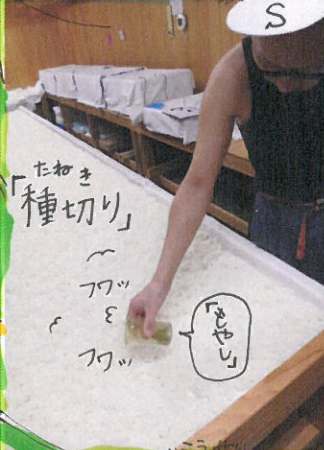 S
たねき
「種切り」
フワッ
フワッ
「もやし」